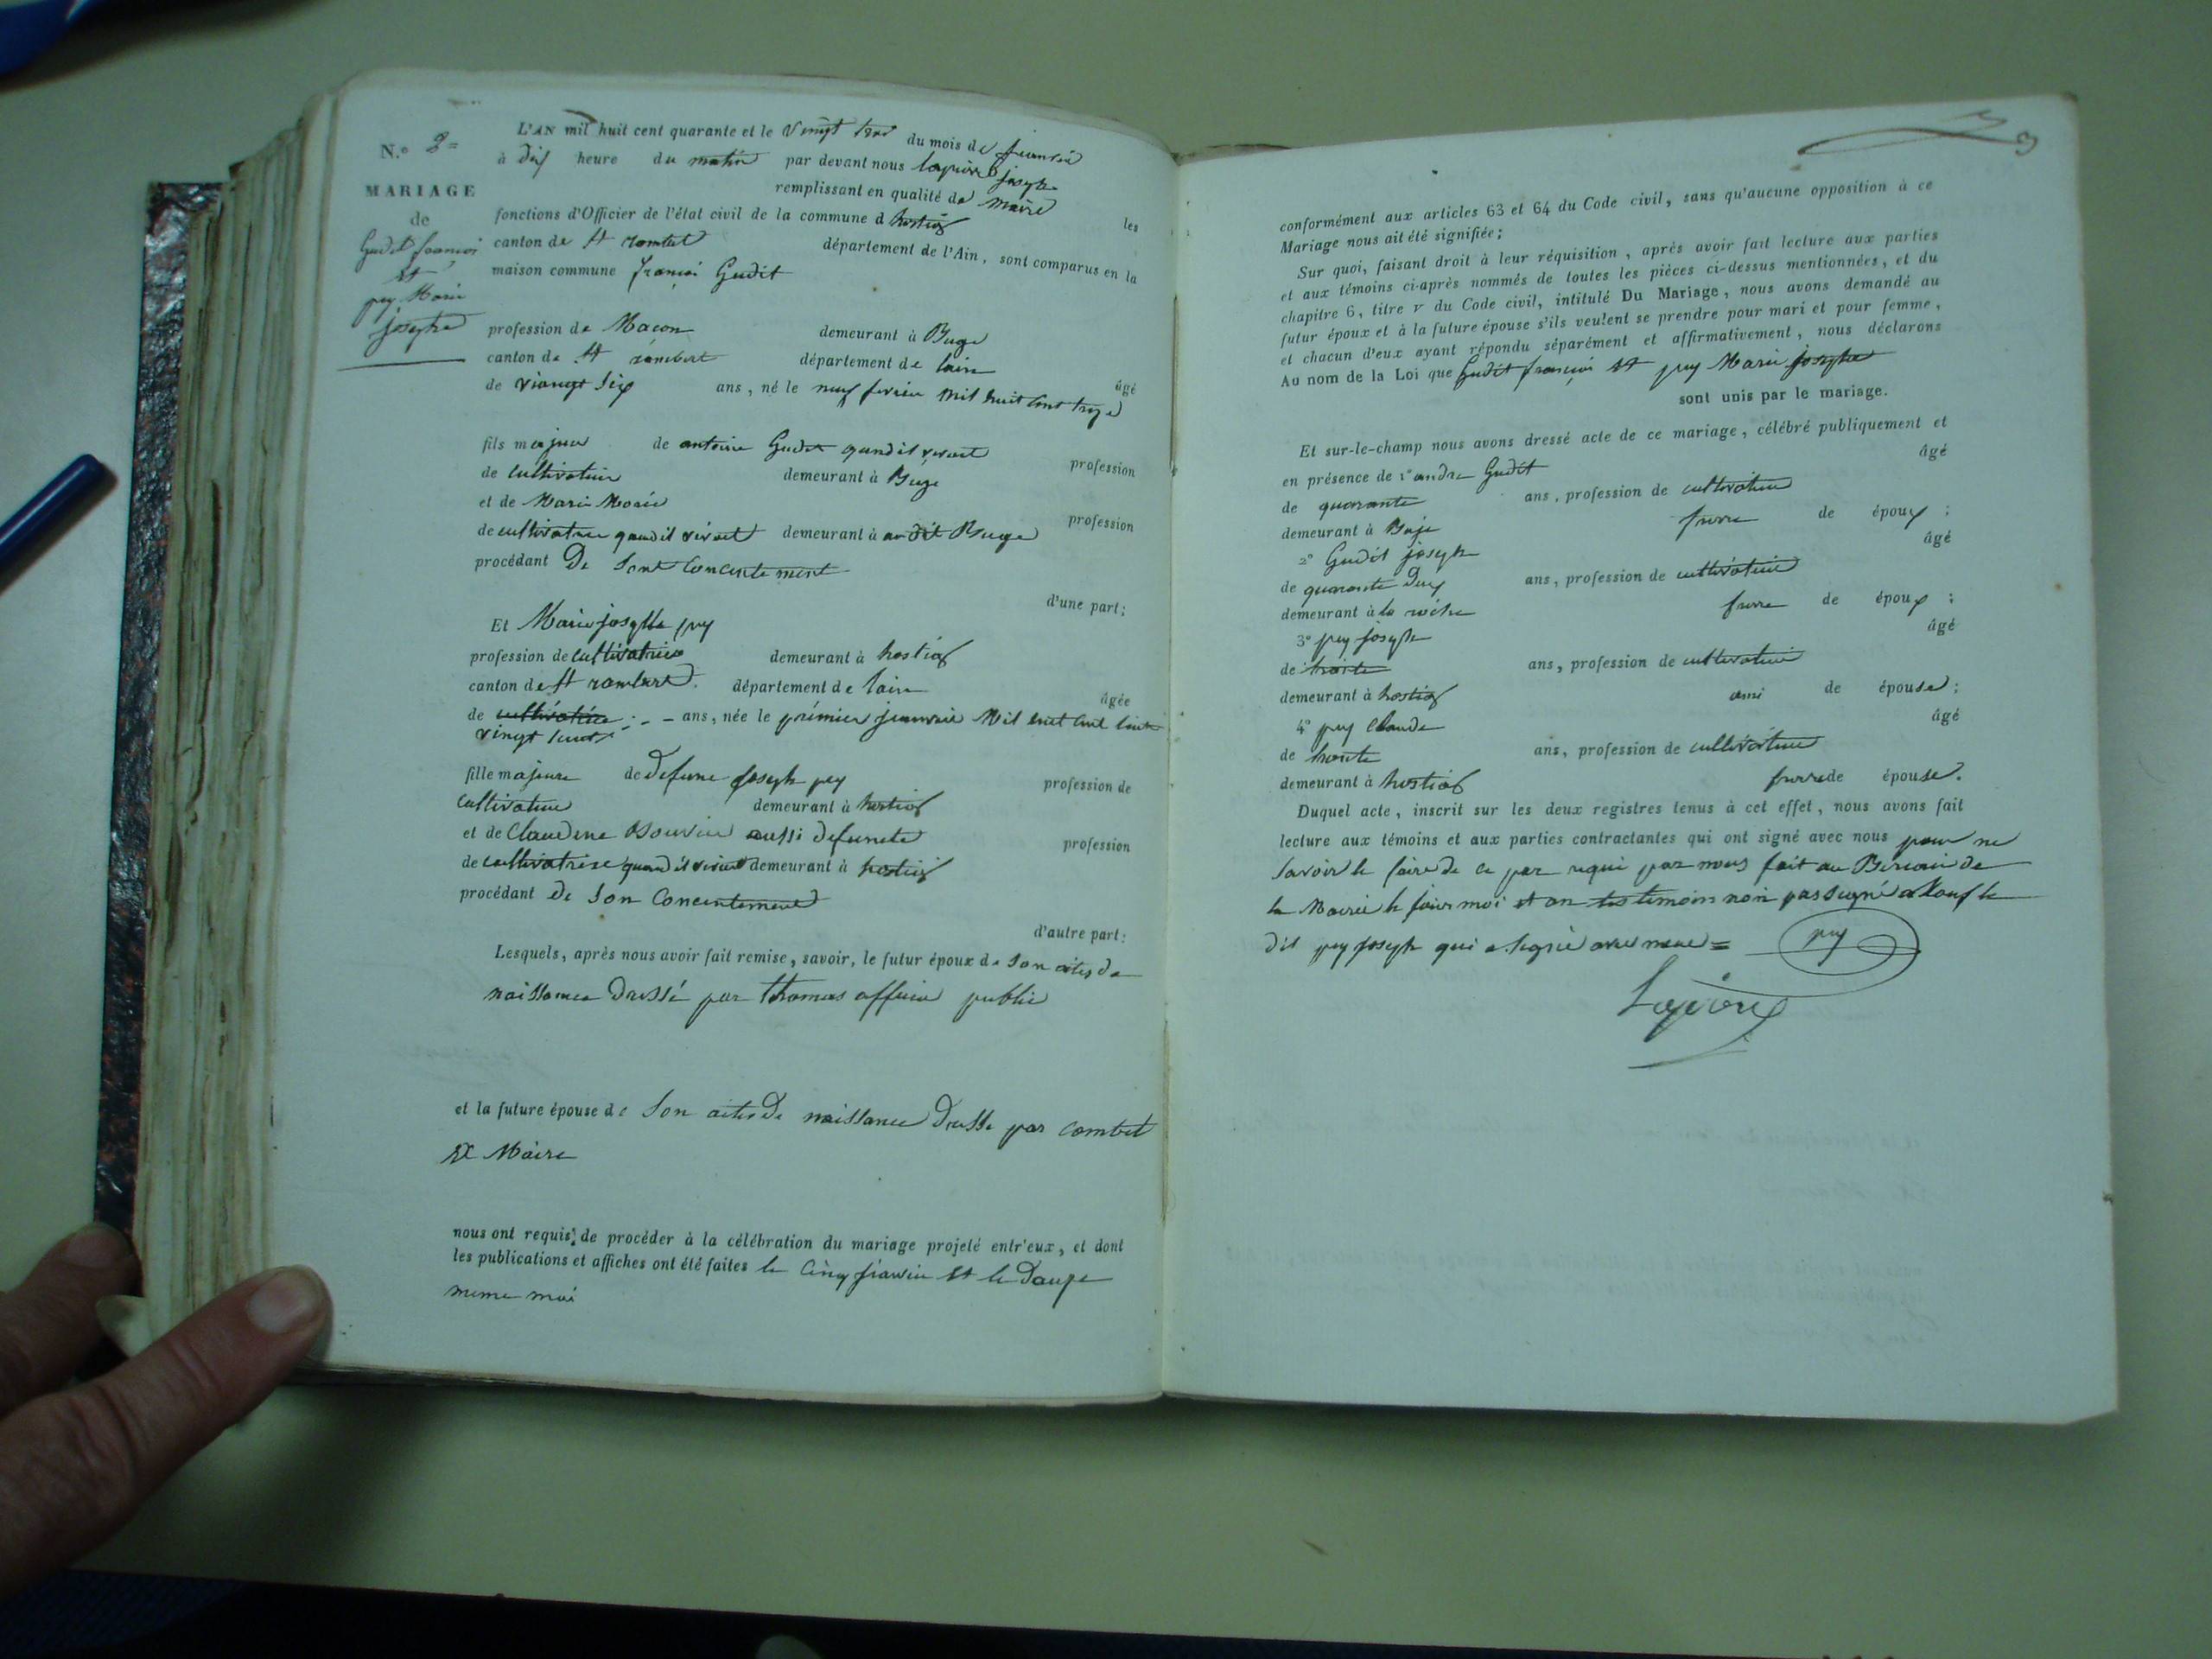 N.º 2=
MARIAGE
de
Gudit francoi
et
pey Marie
josephe
L'AN mil huit cent quarante et le vingt trois du mois de jeanvié
à dix heure du matin par devant nous lapierre joseph
remplissant en qualité de maire les
fonctions d'Officier de l'état civil de la commune d hostiaz
canton de St rambert département de l'Ain, sont comparus en la
maison commune francoi Gudit
profession de Macon demeurant à Buge
canton de St rambert département de lain
âgé
de viengt six ans, né le neuf fevrier mil huit cent treze
fils majeur de antoine Gudit quand il vivait profession
de cultivateur demeurant à Buge
et de Marie Marié profession
de cultivatrice quand il vivoit demeurant à au dit Buge
procédant De sont concentement
d'une part;
Et Marie josephe pey
profession de cultivatrice demeurant à hostiaz
canton de St rambert département de lain
âgée
de cultivatrice ans, née le prémier jeanvie Mil huit cent
vingt
fille majeure de defunc joseph pey profession de
cultivateur demeurant à hostiaz
et de Claudine Bouvier aussi defuncte profession
de cultivatrice quand il vivoit demeurant à hostiaz
procédant de son concentement
d'autre part:
Lesquels, après nous avoir fait remise, savoir, le futur époux de son actes de
naissance dressé par thomas officié public
et la future épouse de son actes de naissance dressé par combet
ex Maire
nous ont requis de procéder à la célébration du mariage projeté entr'eux, et dont
les publications et affiches ont été faites le cinq et le douze
meme moi
3
conformément aux articles 63 et 64 du Code civil, sans qu'aucune opposition à ce
Mariage nous ait été signifiée;
Sur quoi, faisant droit à leur réquisition, après avoir fait lecture aux parties
et aux témoins ci-après nommés de toutes les pièces ci-dessus mentionnées, et du
chapitre 6, titre v du Code civil, intitulé Du Mariage, nous avons demandé au
futur époux et à la future épouse s'ils veulent se prendre pour mari et pour femme,
et chacun d'eux ayant répondu séparément et affirmativement, nous déclarons
Au nom de la Loi que Gudit francoi et pey Marie josephe
sont unis par le mariage.
Et sur-le-champ nous avons dressé acte de ce mariage, célébré publiquement et
en présence de 1º andre Gudit âgé
de quarante ans, profession de cultivateur
demeurant à Buje frere de époux;
2º Gudit joseph âgé
de quarante deux ans, profession de cultivateur
demeurant à la roche frere de époux;
3º pey joseph âgé
de trante ans, profession de cultivateur
demeurant à hostiaz ami de épouse;
4º pey Claude âgé
de trante ans, profession de cultivateur
demeurant à hostiaz frere de épouse.
Duquel acte, inscrit sur les deux registres tenus à cet effet, nous avons fait
lecture aux témoins et aux parties contractantes qui ont signé avec nous pour ne
savoir le faire de ce par nous fait au de
la Mairie le jour moi et an les temoins non pas signé sauf le
dit pey joseph qui a signé avec nous = pey
Lapierre